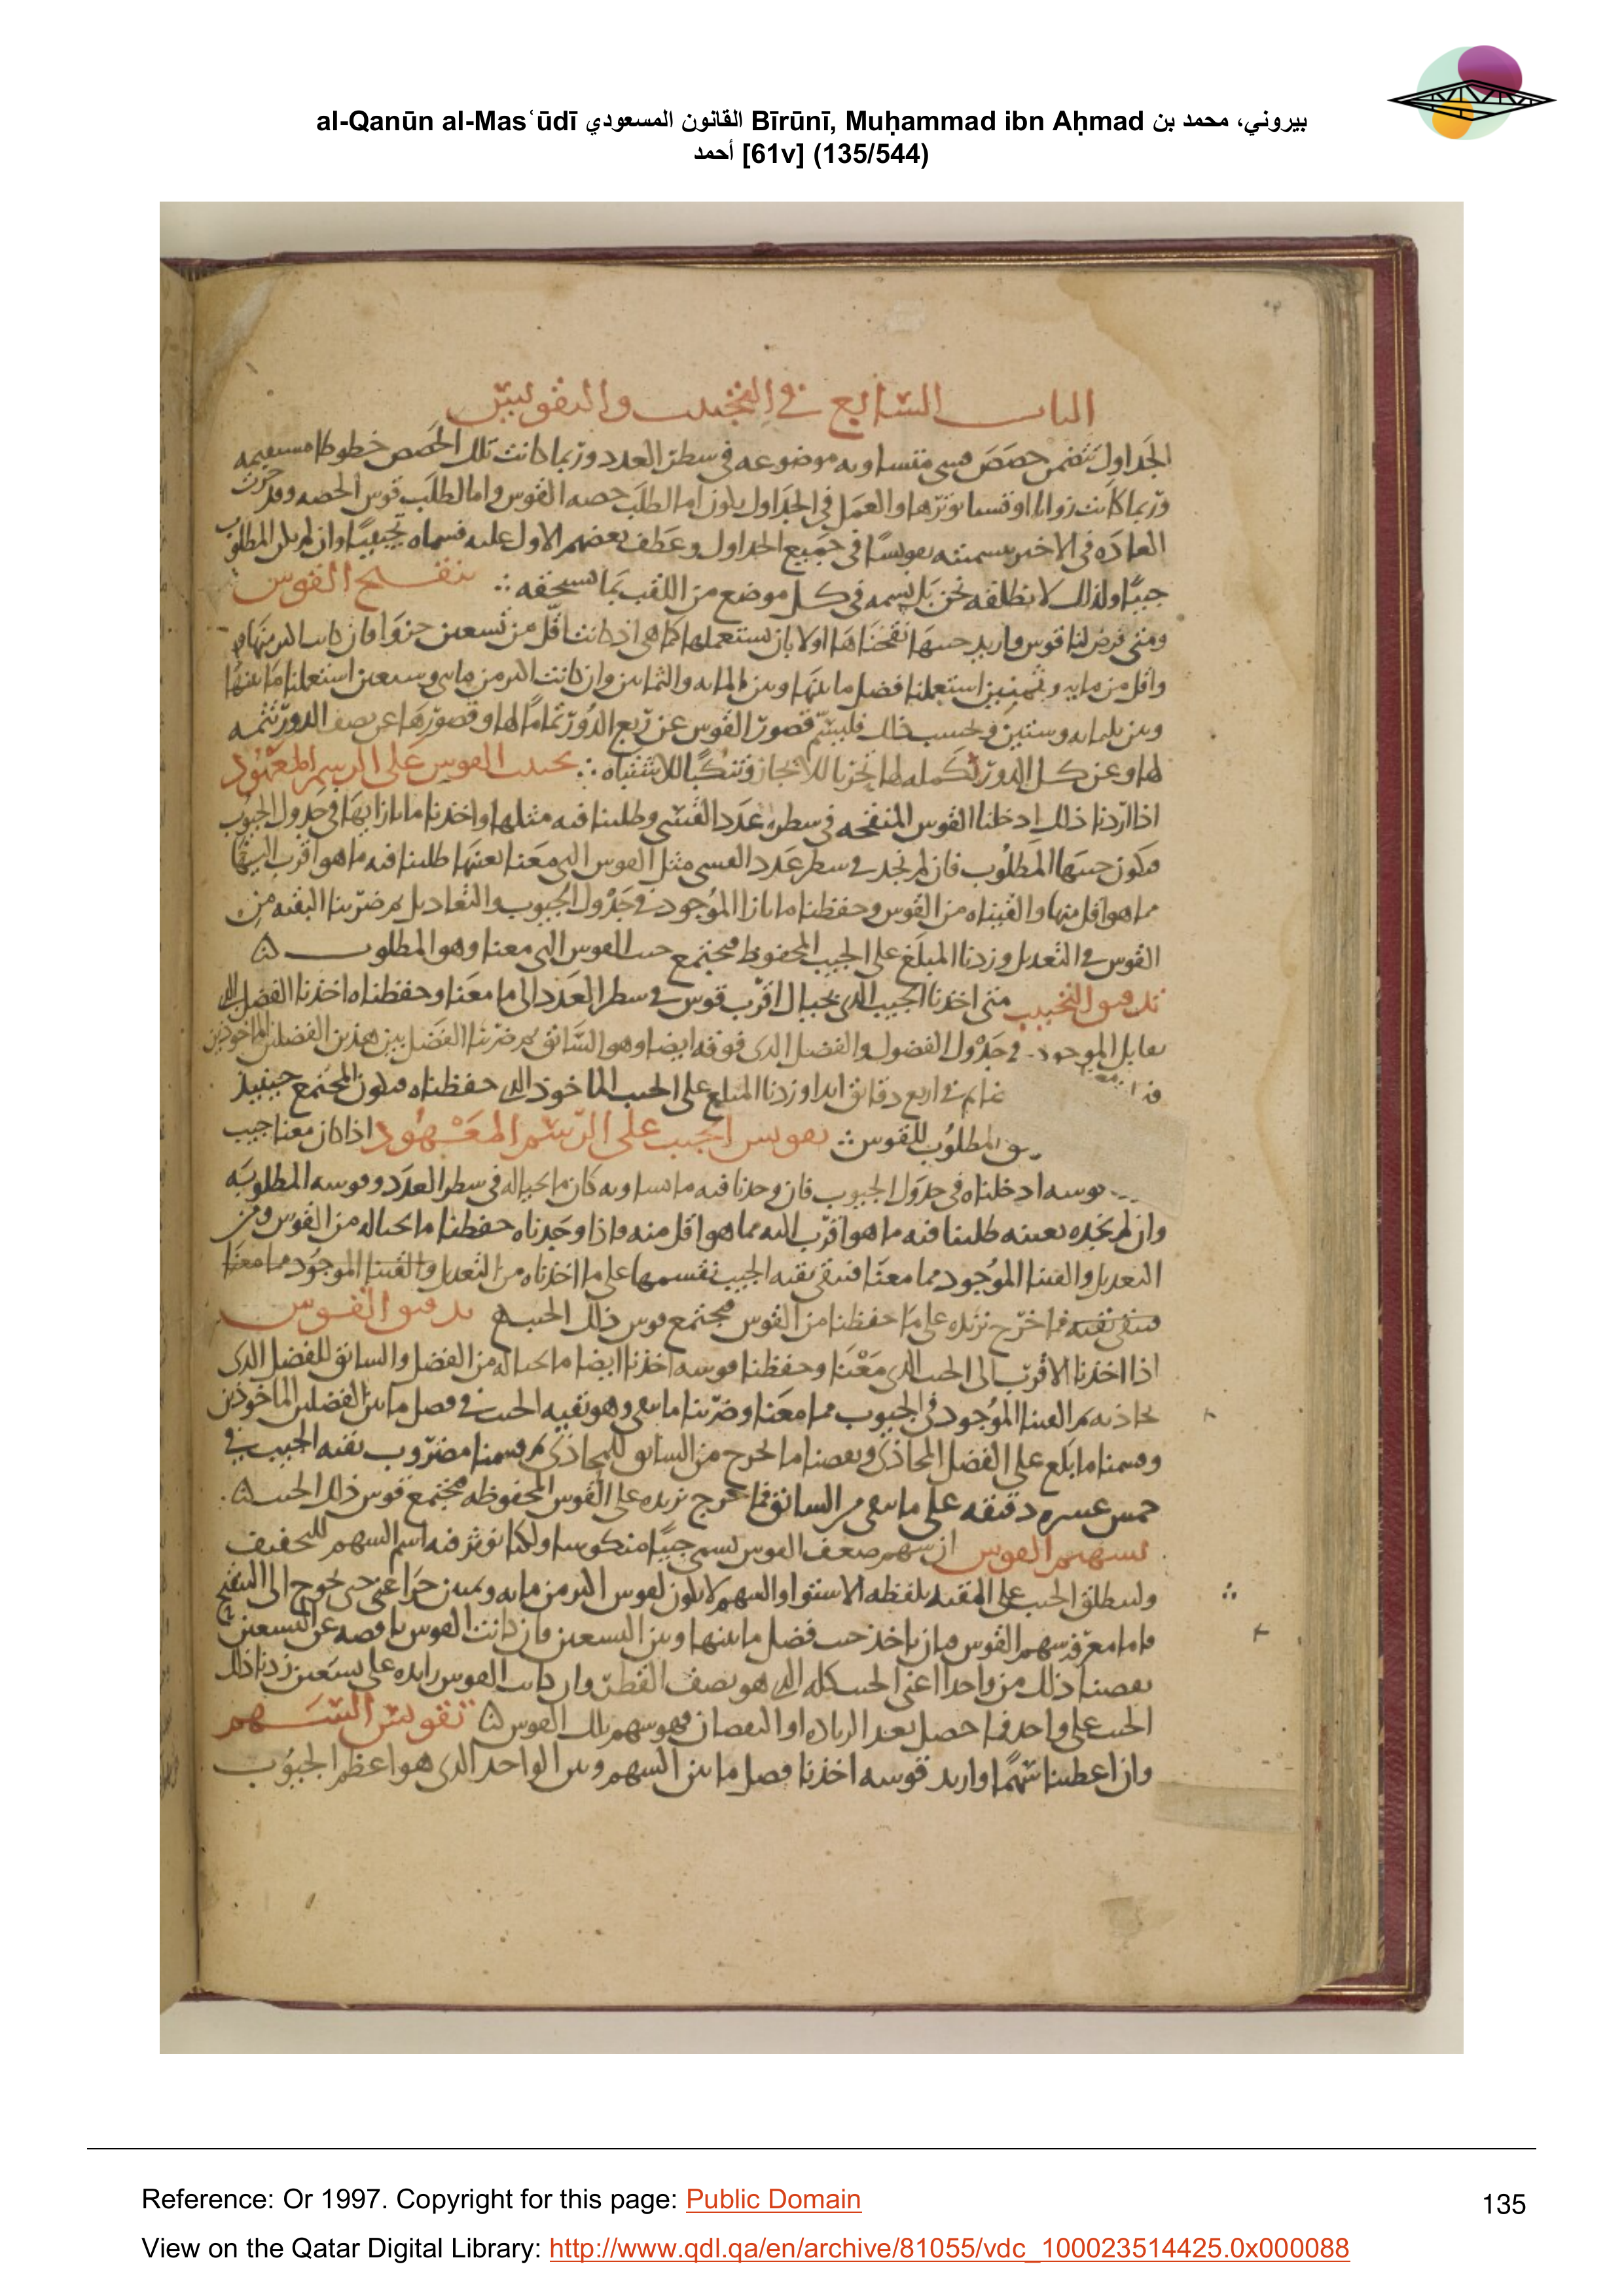 al-Qanūn al-Masʿūdī القانون المسعودي Bīrūnī, Muḥammad ibn Aḥmad بيروني، محمد بن
أحمد [61v] (135/544)
الباب السابع في التجييب والتقويس
الجداول تتضمن حصص قسي متساويه موضوعه في سطر العدد وربما كانت تلك الحصص خطوطا مستقيمه
وربما كانت زوايا او قسيا نوترها والعمل في الجداول يكون اما لطلب حصه القوس واما لطلب قوس الحصه وقد جرت
العاده في الاخير بتسميته تقويسا في جميع الجداول وعطف بعضهم الاول عليه فسماه تجييبا وان لم يكن المطلوب
جيبا ولذلك لا نطلقه نحن بل نسمه في كل موضع من اللقب بما يستحقه ∴ تنقيح القوس
ومتى فرض لنا قوس واريد جيبها نقحناها اولا بان نستعملها كما هي اذا كانت اقل من تسعين جزوا فان كانت اكثر منها
واقل من مايه وثمنين استعملنا فضل ما بينها وبين المايه والثمانين وان كانت اكثر من مايتي وسبعين استعملنا ما بينها
وبين ثلثمايه وستين وبحسب ذلك فليسم قصور القوس عن ربع الدور تماما لها وقصورها عن نصف الدور تتمه
لها وعن كل الدور تكمله لها تحريا للايجاز وتنكبا للاشتباه ∴ تجييب القوس على الرسم المعهود
اذا اردنا ذلك ادخلنا القوس المنقحه في سطر عدد القسي وطلبنا فيه مثلها واخذنا ما بازايها في جدول الجيوب
فيكون جيبها المطلوب فان لم نجد في سطر عدد القسي مثل القوس التي معنا بعينها طلبنا فيه ما هو اقرب اليها
مما هو اقل منها والقيناه من القوس وحفظنا ما بازا الموجود في جدول الجيوب والتعاديل ثم ضربنا البقيه من
القوس في التعديل وزدنا المبلغ على الجيب المحفوظ فيجتمع جيب القوس التي معنا وهو المطلوب
تدقيق التجييب متى اخذنا الجيب الذي بحيال اقرب قوس في سطر العدد الى ما معنا وحفظناه اخذنا الفضل الذي
يقابل الموجود في جدول الفضول والفضل الذي فوقه ايضا وهو السابق ثم ضربنا الفضل بين هذين الفضلين الماخوذين
في اربع دقائق ابدا وزدنا المبلغ على الجيب الماخوذ الذي حفظناه فيكون المجتمع حينئذ
المطلوب للقوس ∴ تقويس الجيب على الرسم المعهود اذا كان معنا جيب
قوسه ادخلناه في جدول الجيوب فان وجدنا فيه ما يساويه كان ما بحياله في سطر العدد وقوسه المطلوبه
وان لم نجده بعينه طلبنا فيه ما هو اقرب اليه مما هو اقل منه واذا وجدناه حفظنا ما بحياله من القوس ومن
التعديل والقينا الموجود مما معنا فتبقى بقيه الجيب نقسمها على ما اخذناه من التعديل والقينا الموجود مما معنا
فتبقى بقيه فما خرج نزيده على ما حفظنا من القوس فيجتمع قوس ذلك الجيب تدقيق القوس
اذا اخذنا الاقرب الى الجيب الذي معنا وحفظنا قوسه اخذنا ايضا ما بحياله من الفضل والسابق للفضل الذي
يحاذيه ثم القينا الموجود في الجيوب مما معنا وضربنا ما بقي وهو بقيه الجيب في فضل ما بين الفضلين الماخوذين
وقسمنا ما بلغ على الفضل المحاذي ونقصنا ما يخرج من السابق للمحاذي ثم قسمنا مضروب بقيه الجيب في
خمس عشره دقيقه على ما بقي من السابق فما خرج نزيده على القوس المحفوظه فيجتمع قوس ذلك الجيب
تسهيم القوس ان سهم ضعف القوس يسمى جيبا منكوسا ولكنا نوثر فيه اسم السهم للتخفيف
ولينطلق الجيب على المقيد بلفظه الاستوا والسهم لا يكون لقوس اكثر من مايه وثمنين جزا اعني حتى يحوج الى التنقيح
فاما معرفه سهم القوس فبان ناخذ جيب فضل ما بينها وبين التسعين فان كانت القوس ناقصه عن التسعين
نقصنا ذلك من واحد اعني الجيب كله الذي هو نصف القطر وان كانت القوس زايده على تسعين زدنا ذلك
الجيب على واحد فما حصل بعد الزياده او النقصان فهو سهم تلك القوس تقويس السهم
وان اعطينا سهما واريد قوسه اخذنا فضل ما بين السهم وبين الواحد الذي هو اعظم الجيوب
Reference: Or 1997. Copyright for this page: Public Domain
135
View on the Qatar Digital Library: http://www.qdl.qa/en/archive/81055/vdc_100023514425.0x000088